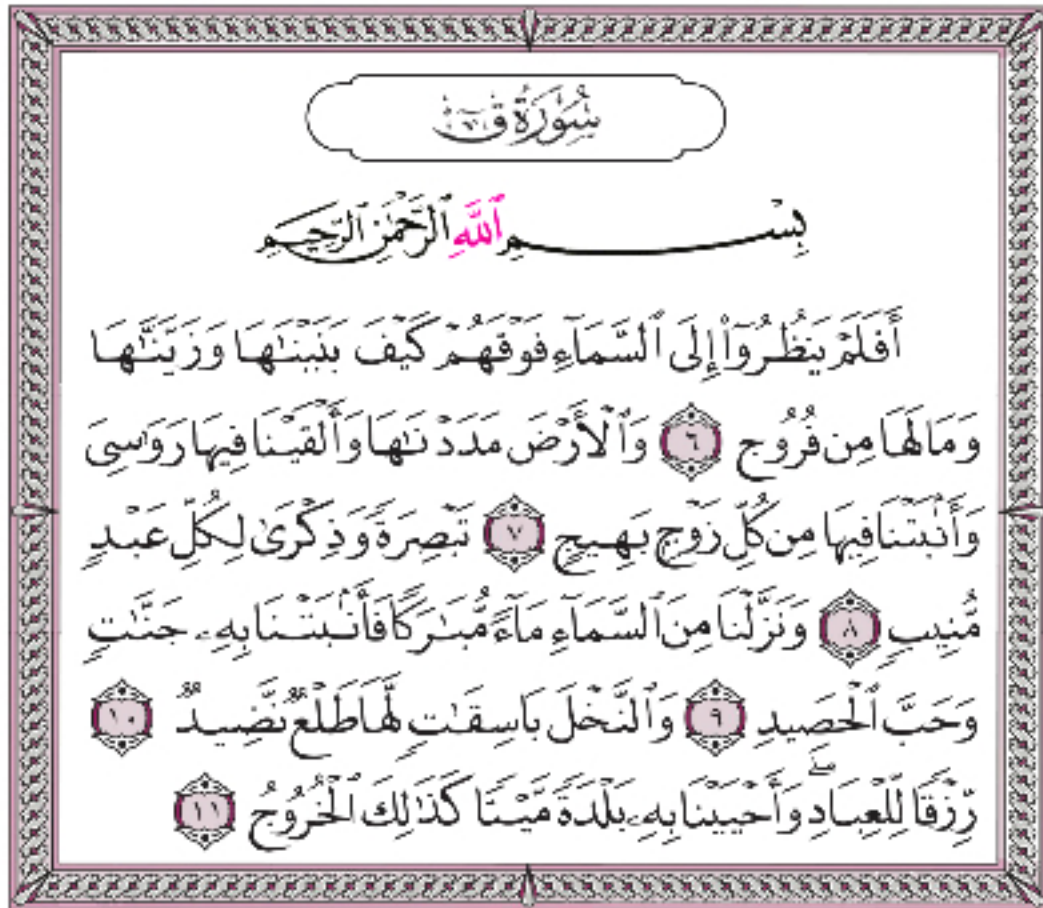 سُورَةُ ق
بِسْمِ ٱللَّهِ ٱلرَّحْمَٰنِ ٱلرَّحِيمِ
أَفَلَمْ يَنظُرُوٓا۟ إِلَى ٱلسَّمَآءِ فَوْقَهُمْ كَيْفَ بَنَيْنَٰهَا وَزَيَّنَّٰهَا
وَمَا لَهَا مِن فُرُوجٍ ٦ وَٱلْأَرْضَ مَدَدْنَٰهَا وَأَلْقَيْنَا فِيهَا رَوَٰسِىَ
وَأَنۢبَتْنَا فِيهَا مِن كُلِّ زَوْجٍۭ بَهِيجٍ ٧ تَبْصِرَةً وَذِكْرَىٰ لِكُلِّ عَبْدٍ
مُّنِيبٍ ٨ وَنَزَّلْنَا مِنَ ٱلسَّمَآءِ مَآءً مُّبَٰرَكًا فَأَنۢبَتْنَا بِهِۦ جَنَّٰتٍ
وَحَبَّ ٱلْحَصِيدِ ٩ وَٱلنَّخْلَ بَاسِقَٰتٍ لَّهَا طَلْعٌ نَّضِيدٌ ١٠
رِّزْقًا لِّلْعِبَادِ ۖ وَأَحْيَيْنَا بِهِۦ بَلْدَةً مَّيْتًا كَذَٰلِكَ ٱلْخُرُوجُ ١١